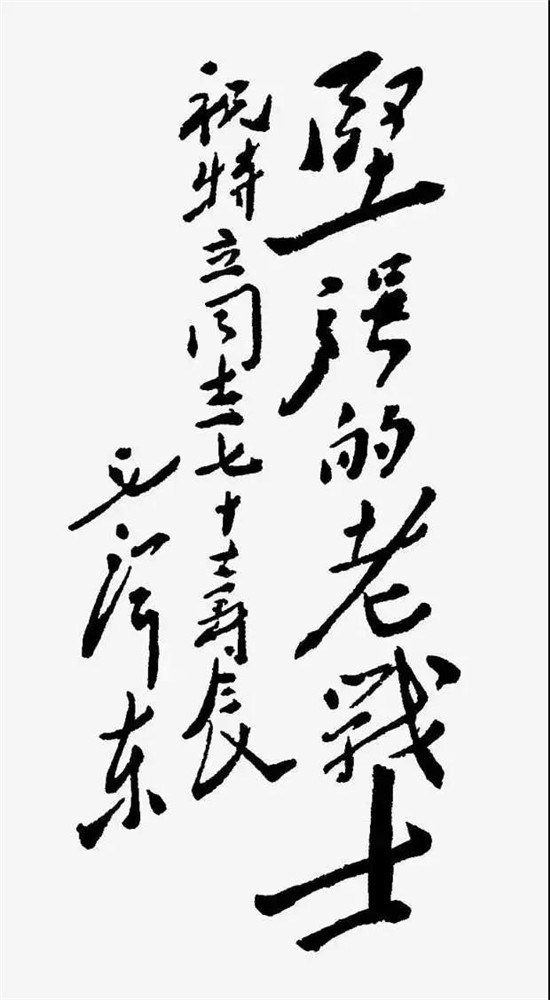 堅强的老戰士
祝特立同志七十大壽長
毛澤东